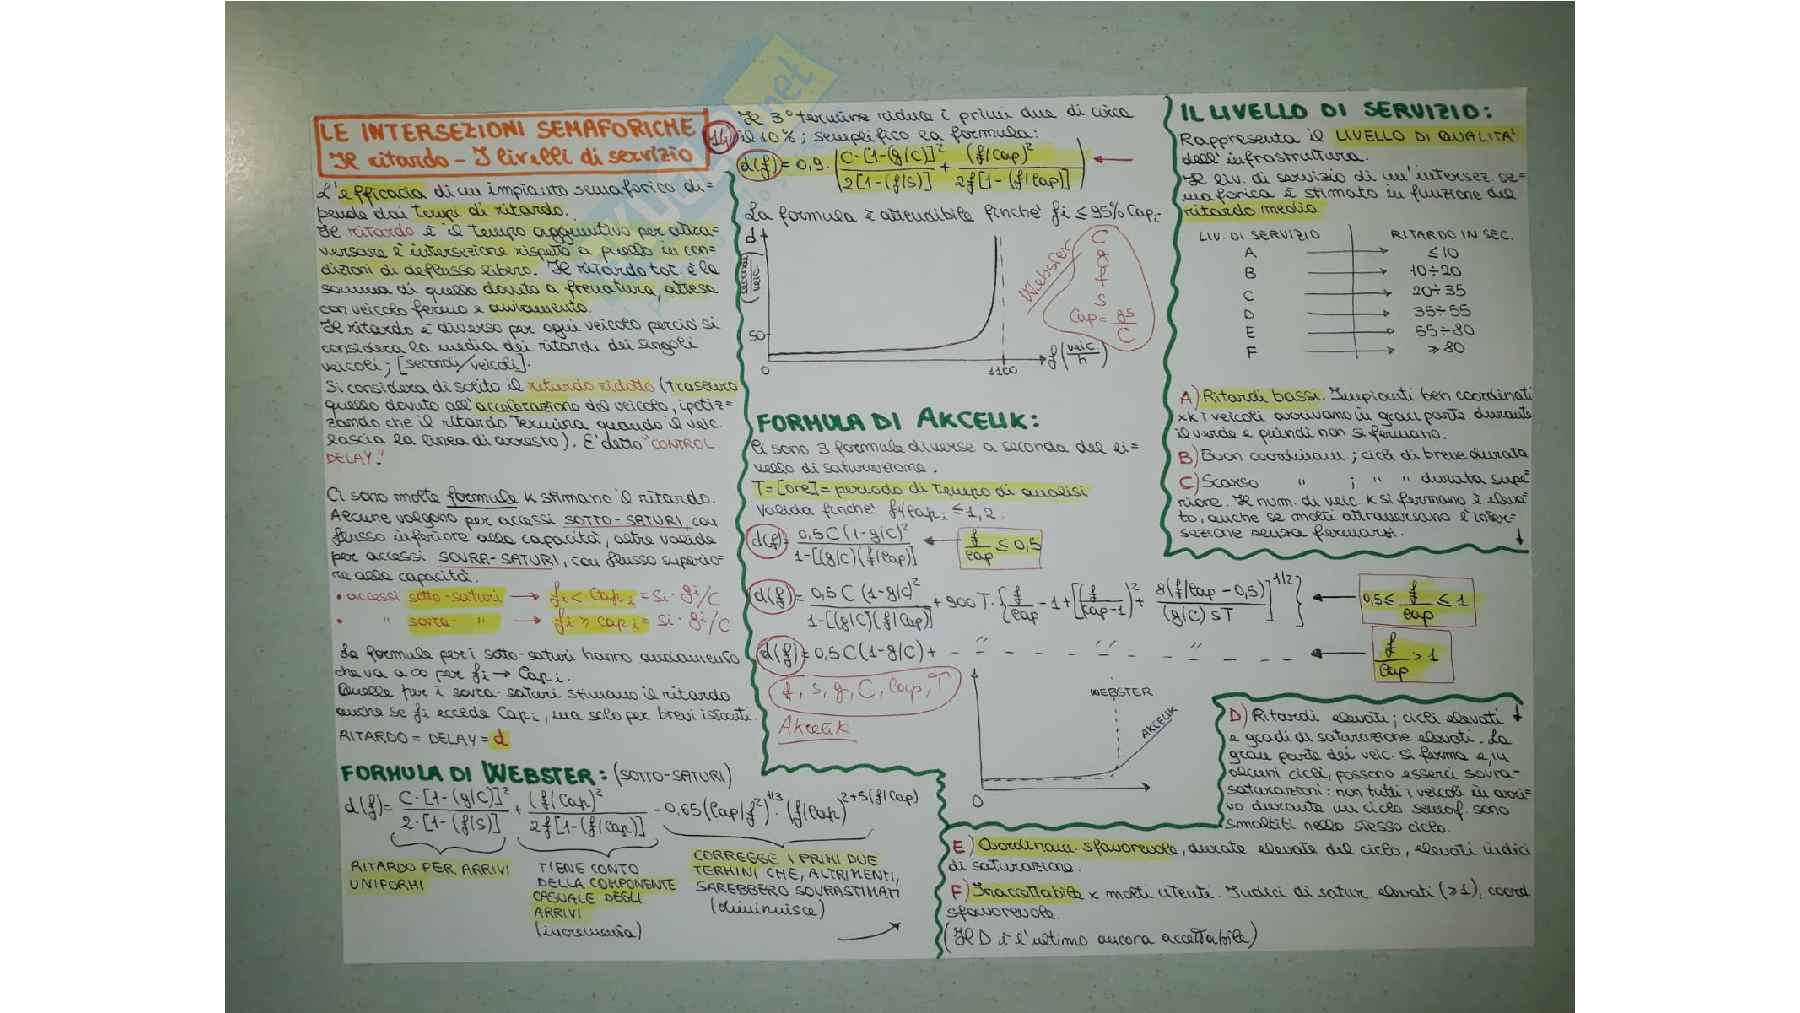 LE INTERSEZIONI SEMAFORICHE
Il ritardo - I livelli di servizio
L'efficacia di un impianto semaforico di=
pende dai tempi di ritardo.
Il ritardo è il tempo aggiuntivo per attra=
versare l'intersezione rispetto a quello in con=
dizioni di deflusso libero. Il ritardo tot è la
somma di quello dovuto a frenatura, attesa
con veicolo fermo e avviamento.
Il ritardo è diverso per ogni veicolo perciò si
considera la media dei ritardi dei singoli
veicoli; [secondi/veicoli].
Si considera di solito il ritardo ridotto (trascuro
quello dovuto all'accelerazione del veicolo, ipotiz=
zando che il ritardo termina quando il veic.
lascia la linea di arresto). E' detto "CONTROL
DELAY".
Ci sono molte formule x stimare il ritardo.
Alcune valgono per accessi SOTTO-SATURI, con
flusso inferiore alla capacità, altre valide
per accessi SOVRA-SATURI, con flusso superio=
re alla capacità.
• accessi sotto-saturi → fi < Capi = si·gi/C
• " sovra " → fi ≥ Capi = si·gi/C
Le formule per i sotto-saturi hanno andamento
che va a ∞ per fi → Capi.
Quelle per i sovra-saturi stimano il ritardo
anche se fi eccede Capi, ma solo per brevi istanti.
RITARDO = DELAY = d
FORMULA DI WEBSTER: (SOTTO-SATURI)
d(f)= C·[1-(g/C)]²/2·[1-(f/s)] + (f/Cap)²/2f[1-(f/Cap)] - 0,65(Cap/f²)^1/3·(f/Cap)^2+5(g/Cap)
RITARDO PER ARRIVI
UNIFORMI
TIENE CONTO
DELLA COMPONENTE
CASUALE DEGLI
ARRIVI
(incrementa)
CORREGGE I PRIMI DUE
TERMINI CHE, ALTRIMENTI,
SAREBBERO SOVRASTIMATI
(diminuisce)
14
Il 3° termine riduce i primi due di circa
il 10%; semplifico la formula:
d(f)= 0,9·(C·[1-(g/C)]²/2[1-(f/s)] + (f/Cap)²/2f[1-(f/Cap)])
La formula è attendibile finché fi ≤ 95% Capi
d
(secondi/veic)
50
0
1100
f (veic/h)
Webster
C
g
f
s
Cap = gs/C
FORMULA DI AKCELIK:
Ci sono 3 formule diverse a seconda del li=
vello di saturazione.
T=[ore]= periodo di tempo di analisi
Valida finché fi/Capi ≤ 1,2.
d(f)= 0,5C(1-g/C)²/1-[(g/C)(f/Cap)] ← f/Cap ≤ 0,5
d(f)= 0,5C(1-g/C)²/1-[(g/C)(f/Cap)] + 900T·{f/Cap -1+[(f/Cap-1)²+ 8(f/Cap-0,5)/(g/C)sT]^1/2} ← 0,5≤ f/Cap ≤ 1
d(f)= 0,5C(1-g/C)+ - " - - " - - " - - ← f/Cap > 1
f, s, g, C, Cap, T
Akcelik
WEBSTER
AKCELIK
0
IL LIVELLO DI SERVIZIO:
Rappresenta il LIVELLO DI QUALITA'
dell'infrastruttura.
Il liv. di servizio di un'intersez. se=
maforica è stimato in funzione del
ritardo medio
LIV. DI SERVIZIO RITARDO IN SEC.
A → ≤10
B → 10÷20
C → 20÷35
D → 35÷55
E → 55÷80
F → ≥80
A) Ritardi bassi. Impianti ben coordinati
xk i veicoli arrivano in gran parte durante
il verde e quindi non si fermano.
B) Buon coordinam; cicli di breve durata
C) Scarso " ; " " durata supe=
riore. Il num. di veic. k si fermano è eleva=
to, anche se molti attraversano l'inter=
sezione senza fermarsi.
D) Ritardi elevati; cicli elevati
e gradi di saturazione elevati. La
gran parte dei veic. si ferma e, in
alcuni cicli, possono esserci sovra-
saturazioni: non tutti i veicoli in arri=
vo durante un ciclo semaf. sono
smaltiti nello stesso ciclo.
E) Coordinam. sfavorevole, durate elevate del ciclo, elevati indici
di saturazione.
F) Inaccettabile x molti utenti. Indici di satur. elevati (>1), coord
sfavorevole.
(Il D è l'ultimo ancora accettabile)